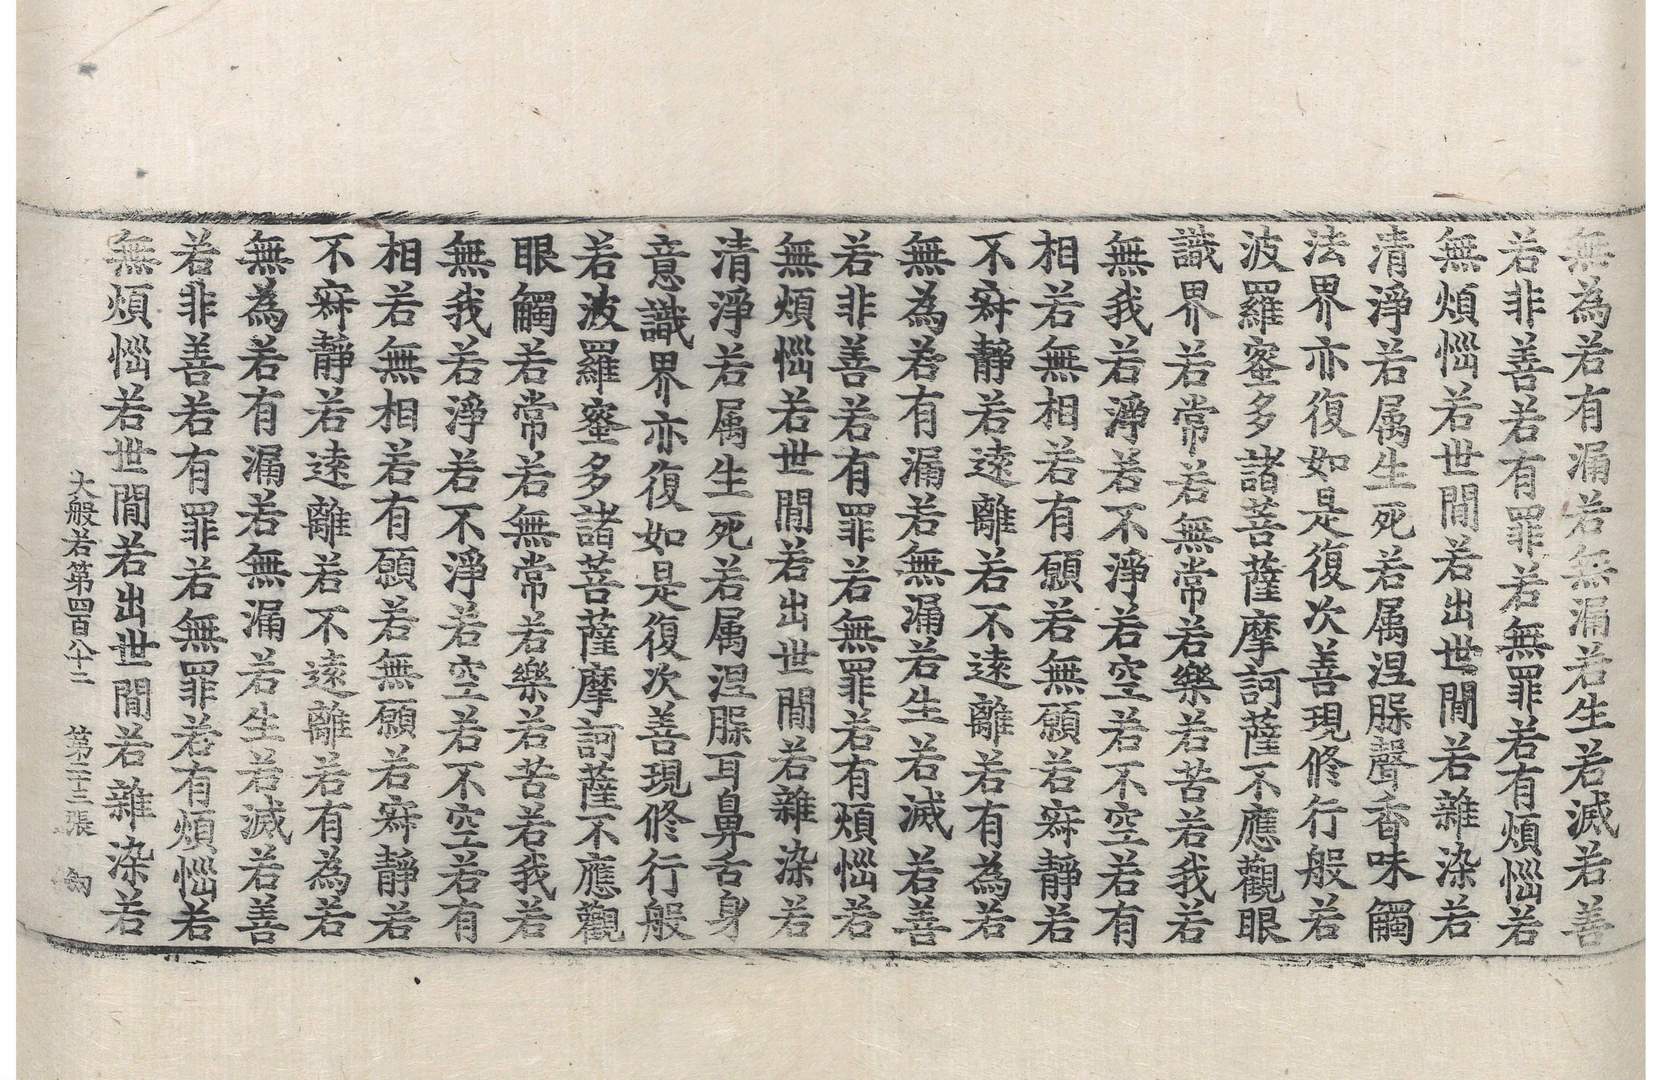 無為若有漏若無漏若生若滅若善
若非善若有罪若無罪若有煩惱若
無煩惱若世間若出世間若雜染若
清淨若属生死若属涅脲聲香味觸
法界亦復如是復次善現修行般若
波羅蜜多諸菩薩摩訶薩不應觀眼
識界若常若無常若樂若苦若我若
無我若淨若不淨若空若不空若有
相若無相若有願若無願若寂靜若
不寂靜若遠離若不遠離若有為若
無為若有漏若無漏若生若滅若善
若非善若有罪若無罪若有煩惱若
無煩惱若世間若出世間若雜染若
清淨若属生死若属涅脲耳鼻舌身
意識界亦復如是復次善現修行般
若波羅蜜多諸菩薩摩訶薩不應觀
眼觸若常若無常若樂若苦若我若
無我若淨若不淨若空若不空若有
相若無相若有願若無願若寂靜若
不寂靜若遠離若不遠離若有為若
無為若有漏若無漏若生若滅若善
若非善若有罪若無罪若有煩惱若
無煩惱若世間若出世間若雜染若
大般若第四百八十二 第二十三張